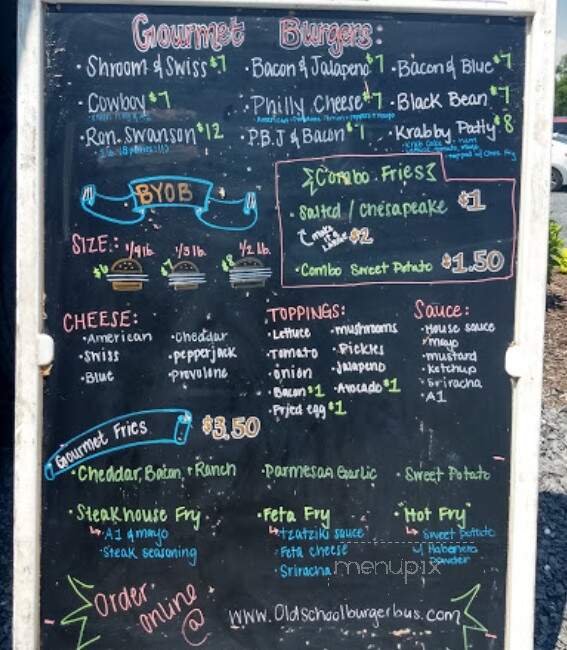 Gourmet Burgers:
· Shroom & Swiss $7 · Bacon & Jalapeno $7 · Bacon & Blue $7
· Cowboy $7 · Philly Cheese $7 · Black Bean $7
· Ron Swanson $12 · P.B.J & Bacon $7 · Krabby Patty $8
BYOB
SIZE: 1/4 lb. 1/3 lb. 1/2 lb.
$6 $7 $8
Combo Fries
· Salted / Chesapeake $1
make it large $2
· Combo Sweet Potato $1.50
CHEESE:
· American · Cheddar
· Swiss · pepperjack
· Blue · Provolone
TOPPINGS:
· Lettuce · mushrooms
· Tomato · Pickles
· onion · Jalapeno
· Bacon $1 · Avocado $1
· Fried egg $1
Sauce:
· House sauce
· mayo
· mustard
· Ketchup
· Sriracha
· A1
Gourmet Fries $3.50
· Cheddar, Bacon, + Ranch · Parmesan Garlic · Sweet Potato
· Steakhouse Fry
· A1 & mayo
· Steak seasoning
· Feta Fry
· tzatziki sauce
· Feta cheese
· Sriracha
· Hot Fry
· Sweet potato
w/ Habanero
powder
menupix
Order online @ www.Oldschoolburgerbus.com